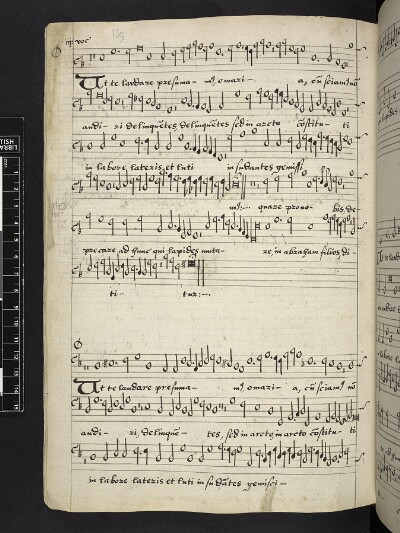 Ut te laudare presuma- m9 o mari- a, cū sciam9 nō
audi- ri delinquētes, delinquētes sed in arcto cōstitu- ti
in labore lateris et luti in sudantes gemisci
m9:-. quare prono- bis, de-
precare ad hunc qui lapides muta- re, in abraham filios di
ti- tur:-.
Ut te laudare presuma- m9 o mari- a, cū sciam9 nō
audi- ri, delinquē- tes, sed in arcto, in arcto cōstitu- ti
in labore lateris et luti in sudātes gemisci-